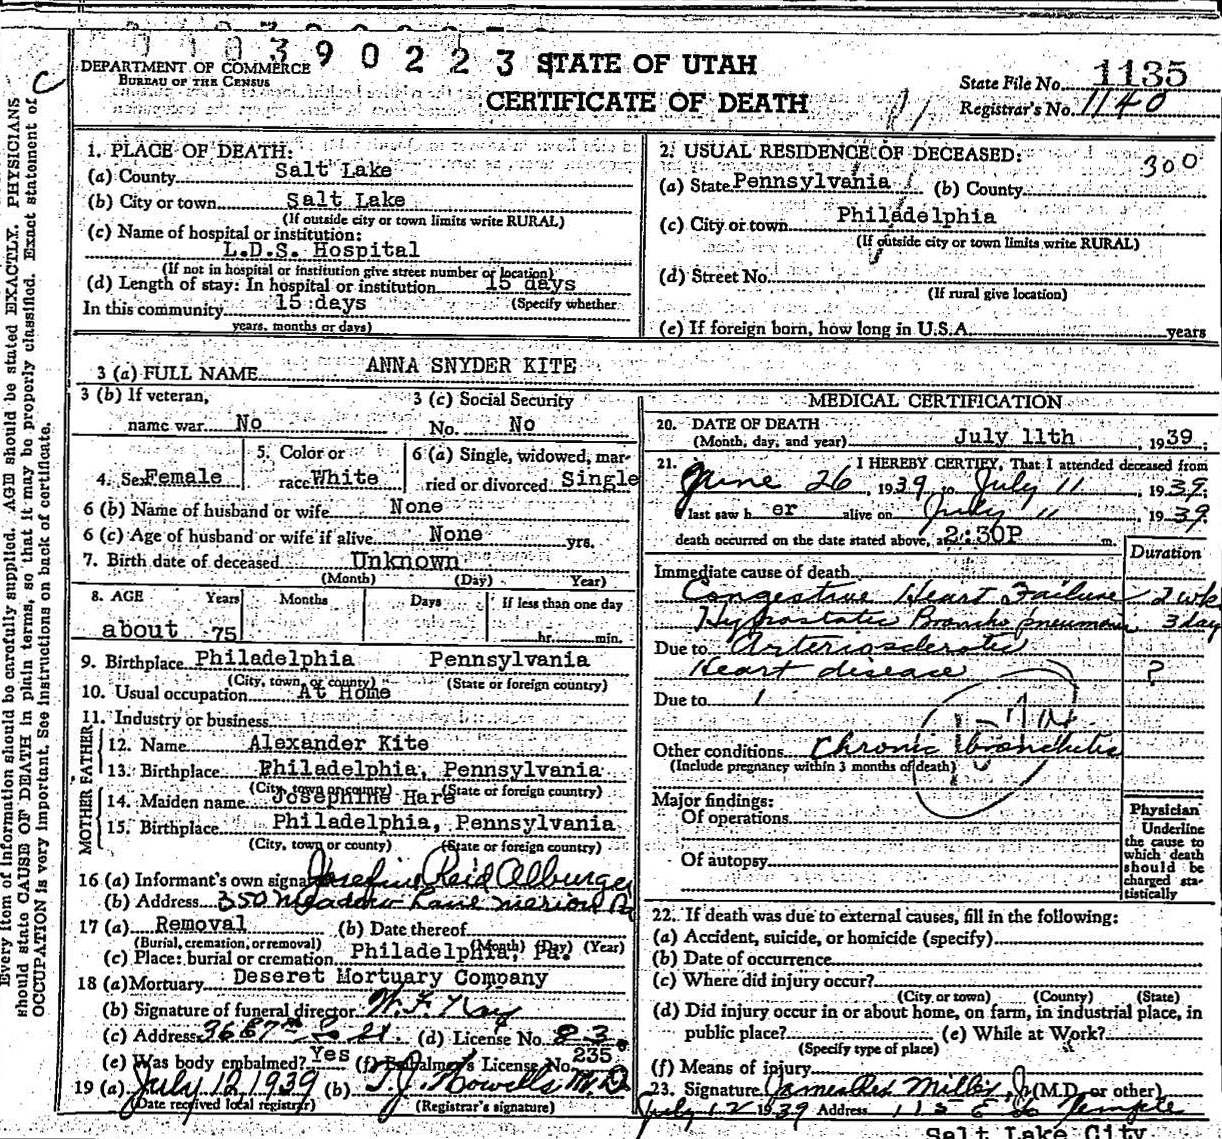 390223 STATE OF UTAH
DEPARTMENT OF COMMERCE
BUREAU OF THE CENSUS
CERTIFICATE OF DEATH
State File No. 1135
Registrar's No. 1140
Every item of information should be carefully supplied. AGE should be stated EXACTLY. PHYSICIANS
should state CAUSE OF DEATH in plain terms, so that it may be properly classified. Exact statement of
OCCUPATION is very important. See instructions on back of certificate.
1. PLACE OF DEATH:
(a) County Salt Lake
(b) City or town Salt Lake
(If outside city or town limits write RURAL)
(c) Name of hospital or institution:
L.D.S. Hospital
(If not in hospital or institution give street number or location)
(d) Length of stay: In hospital or institution 15 days
In this community 15 days (Specify whether
years, months or days)
2. USUAL RESIDENCE OF DECEASED: 300
(a) State Pennsylvania (b) County
(c) City or town Philadelphia
(If outside city or town limits write RURAL)
(d) Street No.
(If rural give location)
(e) If foreign born, how long in U.S.A. years
3 (a) FULL NAME ANNA SNYDER KITE
3 (b) If veteran, 3 (c) Social Security
name war No No. No
4. Sex Female 5. Color or race White 6 (a) Single, widowed, married or divorced Single
6 (b) Name of husband or wife None
6 (c) Age of husband or wife if alive None yrs.
7. Birth date of deceased Unknown
(Month) (Day) Year)
8. AGE Years Months Days If less than one day
about 75 hr. min.
9. Birthplace Philadelphia Pennsylvania
(City, town, or county) (State or foreign country)
10. Usual occupation At Home
11. Industry or business
FATHER
12. Name Alexander Kite
13. Birthplace Philadelphia, Pennsylvania
(City, town or county) (State or foreign country)
MOTHER
14. Maiden name Josephine Hare
15. Birthplace Philadelphia, Pennsylvania
(City, town or county) (State or foreign country)
16 (a) Informant's own signa Josefine Reid Alburger
(b) Address 350 Meadow Lane Merion Pa
17 (a) Removal (b) Date thereof
(Burial, cremation, or removal) (Month) (Day) (Year)
(c) Place: burial or cremation Philadelphia, Pa.
18 (a) Mortuary Deseret Mortuary Company
(b) Signature of funeral director
(c) Address 36 E 7th So St. (d) License No. 83
(e) Was body embalmed? Yes (f) Embalmer's License No. 235
19 (a) July 12, 1939 (b) T.J. Howells M.D.
(Date received local registrar) (Registrar's signature)
MEDICAL CERTIFICATION
20. DATE OF DEATH
(Month, day, and year) July 11th, 1939;
21. I HEREBY CERTIFY, That I attended deceased from
June 26, 1939 to July 11, 1939;
I last saw h er alive on July 11, 1939
death occurred on the date stated above, at 2:30P m.
Duration
Immediate cause of death
Congestive Heart Failure 2 wk
Hypostatic Broncho pneumonia 3 day
Due to Arteriosclerotic
Heart disease ?
Due to
Other conditions Chronic bronchitis
(Include pregnancy within 3 months of death)
Major findings:
Of operations
Of autopsy
Physician
Underline
the cause to
which death
should be
charged sta-
tistically
22. If death was due to external causes, fill in the following:
(a) Accident, suicide, or homicide (specify)
(b) Date of occurrence
(c) Where did injury occur?
(City or town) (County) (State)
(d) Did injury occur in or about home, on farm, in industrial place, in
public place? (e) While at Work?
(Specify type of place)
(f) Means of injury
23. Signature Jr (M.D. or other)
July 12 1939 Address 115 E So Temple
Salt Lake City